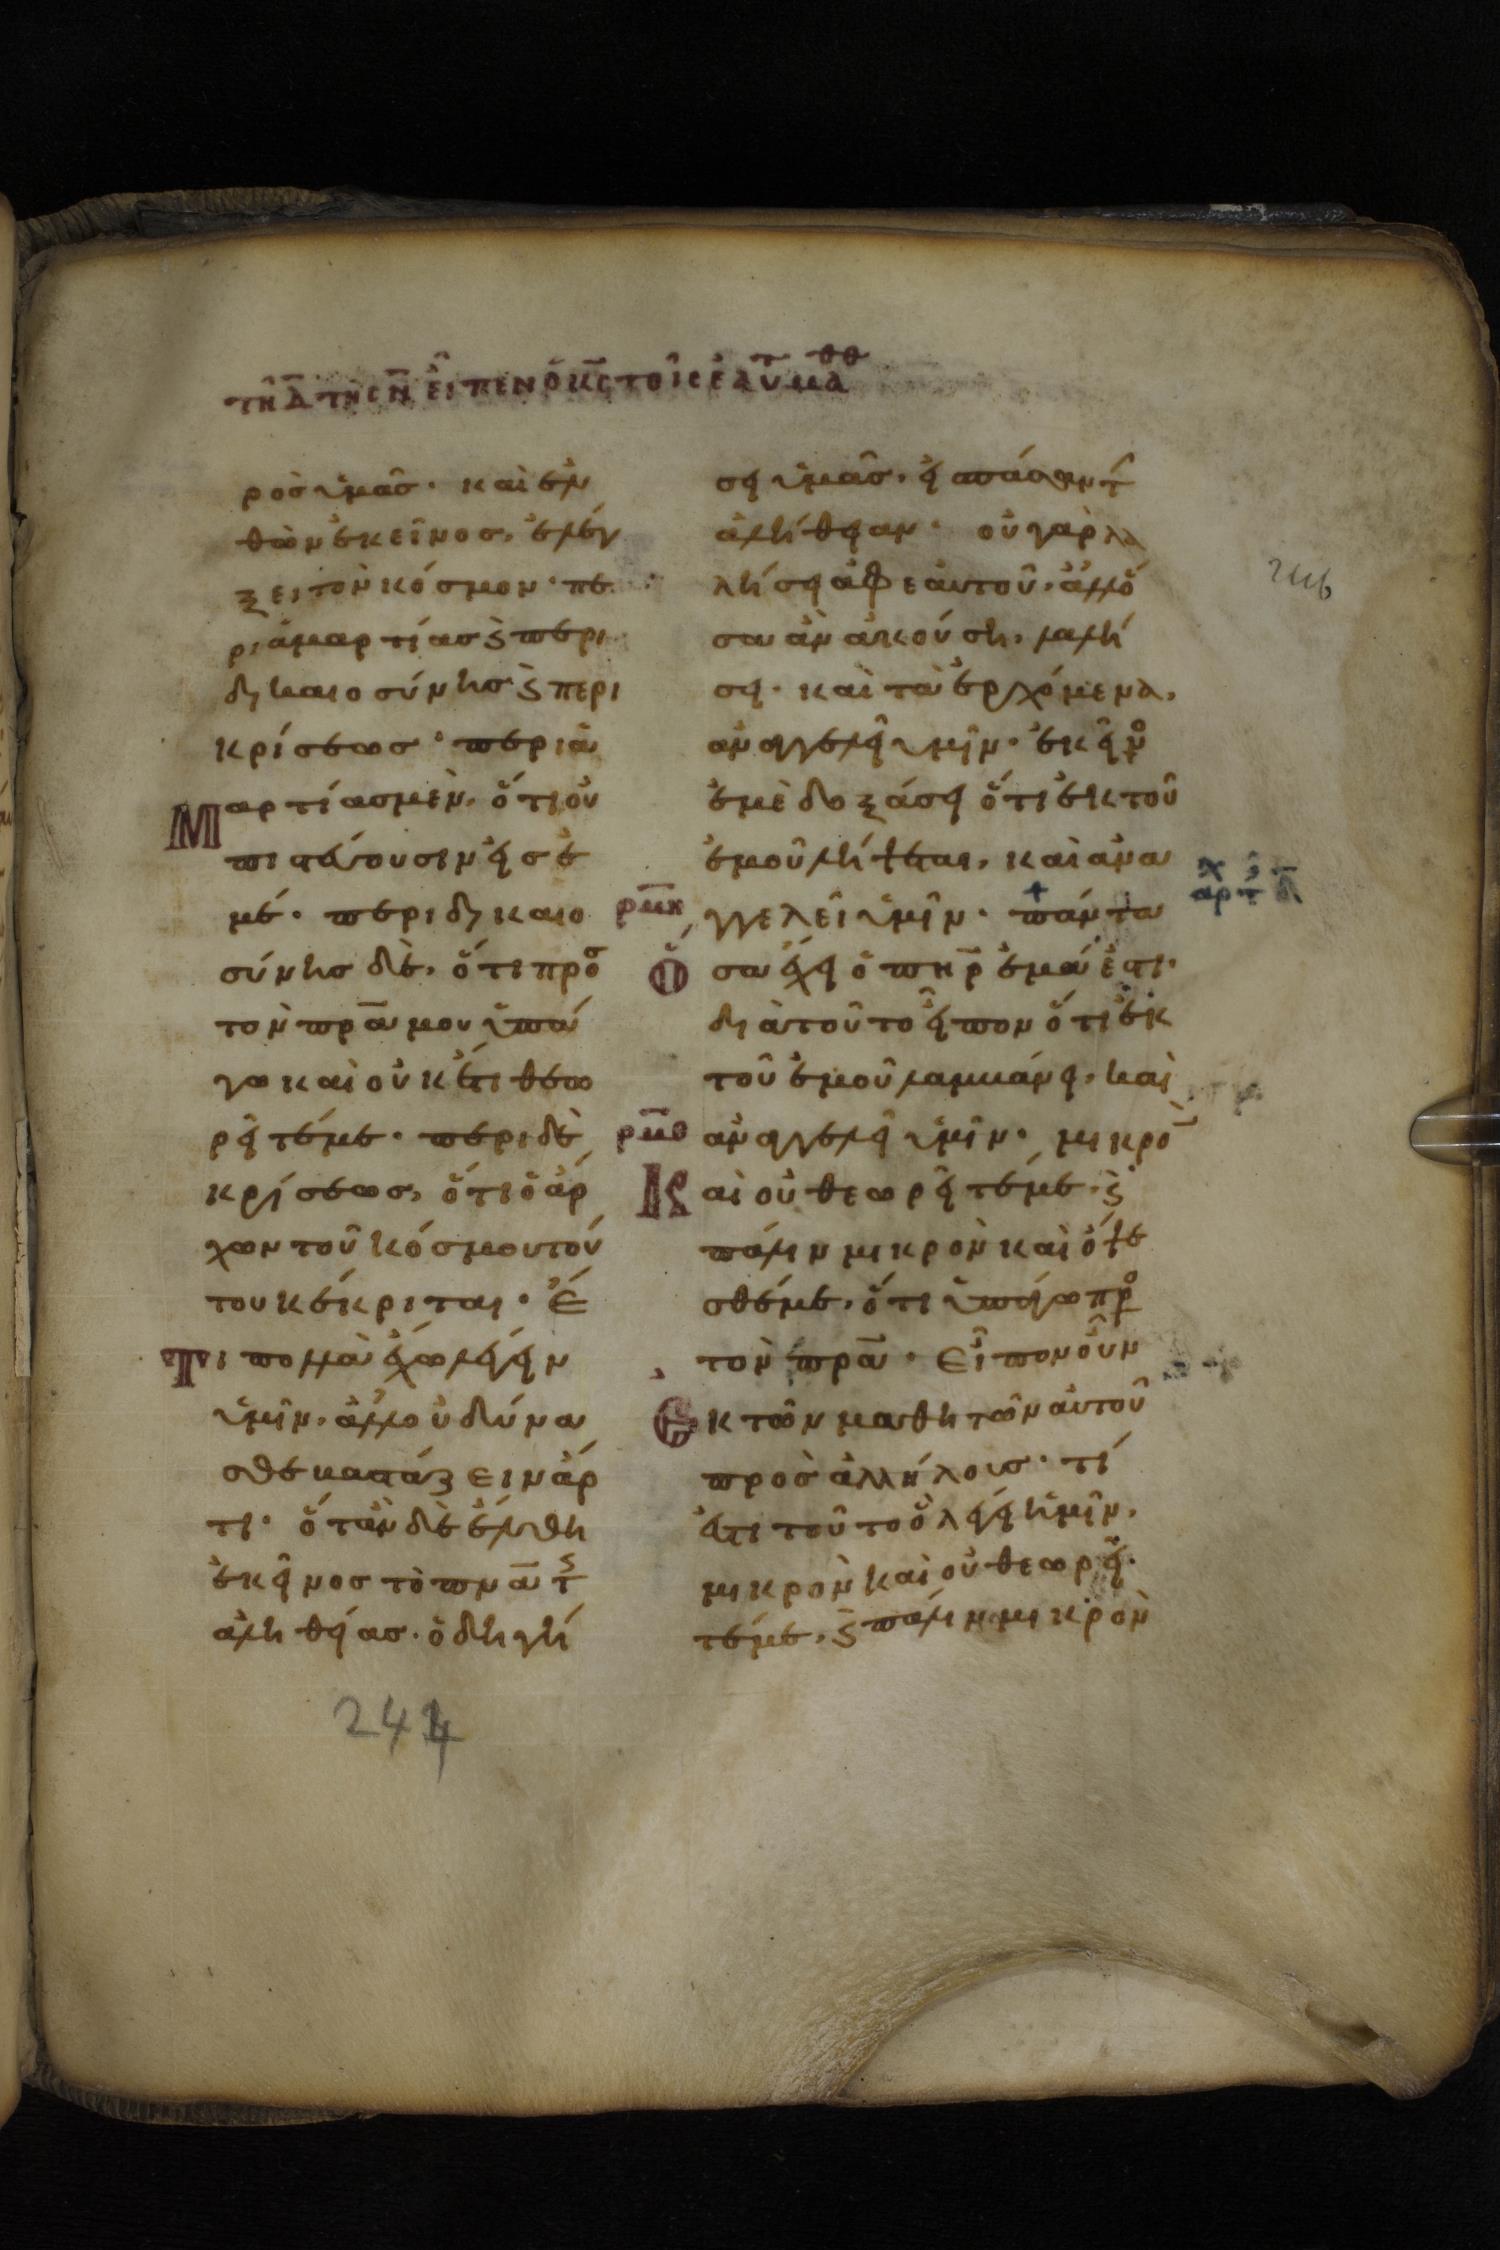 τῆ δ̅ τῆς ν̅ εἶπεν ὁ κ̅ς τοῖς ἑαυτ μαθθ
ρὸσ ὑμᾶσ· καὶ ἐλ
θὼν ἐκεῖνοσ, ἐλέγ
ξει τὸν κόσμον· πε
ρι ἁμαρτίασ ϗ περι
δικαιοσύνησ ϗ περι
κρίσεωσ· περι ἁ
Μαρτίασ μὲν, ὅτι οὐ
πιστεύουσιν εἰσ ἐ
μέ· περι δικαιο
σύνησ δὲ, ὅτι προσ
τὸν πρ̅α μου ὑπά
γω καὶ οὐκέτι θεω
ρεῖτέ με· περι δὲ
κρίσεωσ, ὅτι ὁ ἄρ
χων τοῦ κόσμου τού
του κέκριται· Ἔ
Τι πολλὰ ἔχω λέγειν
ὑμῖν, ἀλλ οὐ δύνα
σθε βαστάζειν ἄρ
τι· ὅταν δὲ ἔλθη
ἐκεῖνοσ τὸ πν̅α τῆς
ἀληθείασ· ὁδηγή
σει ὑμᾶσ, εἰ πάσαν τ
ἀλήθειαν· οὐ γὰρ λα
λήσει ἀφ ἑαυτοῦ, ἀλλ ὅ
σα ἂν ἀκούση, λαλή
σει· καὶ τὰ ἐρχόμενα,
ἀναγγελεῖ ὑμῖν· ἐκεῖνος
ἐμὲ δοξάσει ὅτι ἐκ τοῦ
ἐμοῦ λήψεται, καὶ ανα
ρμη γγελεῖ ὑμῖν· + πάντα
Ὅσα ἔχει ὁ πη̅ρ ἐμά ἐστι·
διὰ τοῦτο εἶπον ὅτι ἐκ
τοῦ ἐμοῦ λαμβάνει, καὶ
ρμθ ἀναγγελεῖ ὑμῖν· μικρὸν
Καὶ οὐ θεωρεῖτέ με· ϗ
πάλιν μικρὸν καὶ ὄψε
σθέ με, ὅτι ὑπάγω προς
τὸν πρ̅α· Εἶπον οὖν
Εκ τῶν μαθητῶν αὐτοῦ
προσ ἀλλήλουσ· τί
ἐστι τοῦτο ὃ λέγει ἡμῖν,
μικρὸν καὶ οὐ θεωρεῖ
τέ με, ϗ πάλιν μικρὸν
αρτ
244